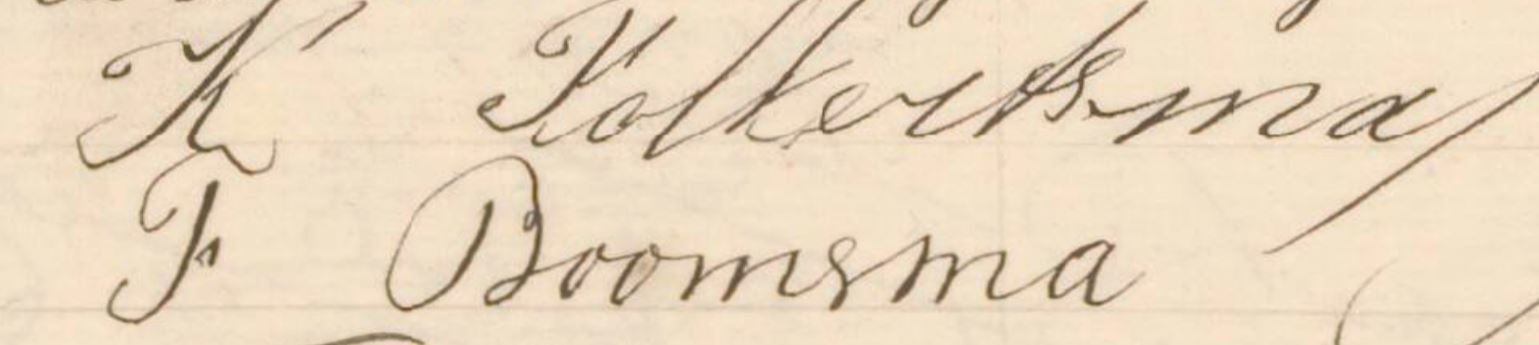 K Folkertsma
F Boomsma